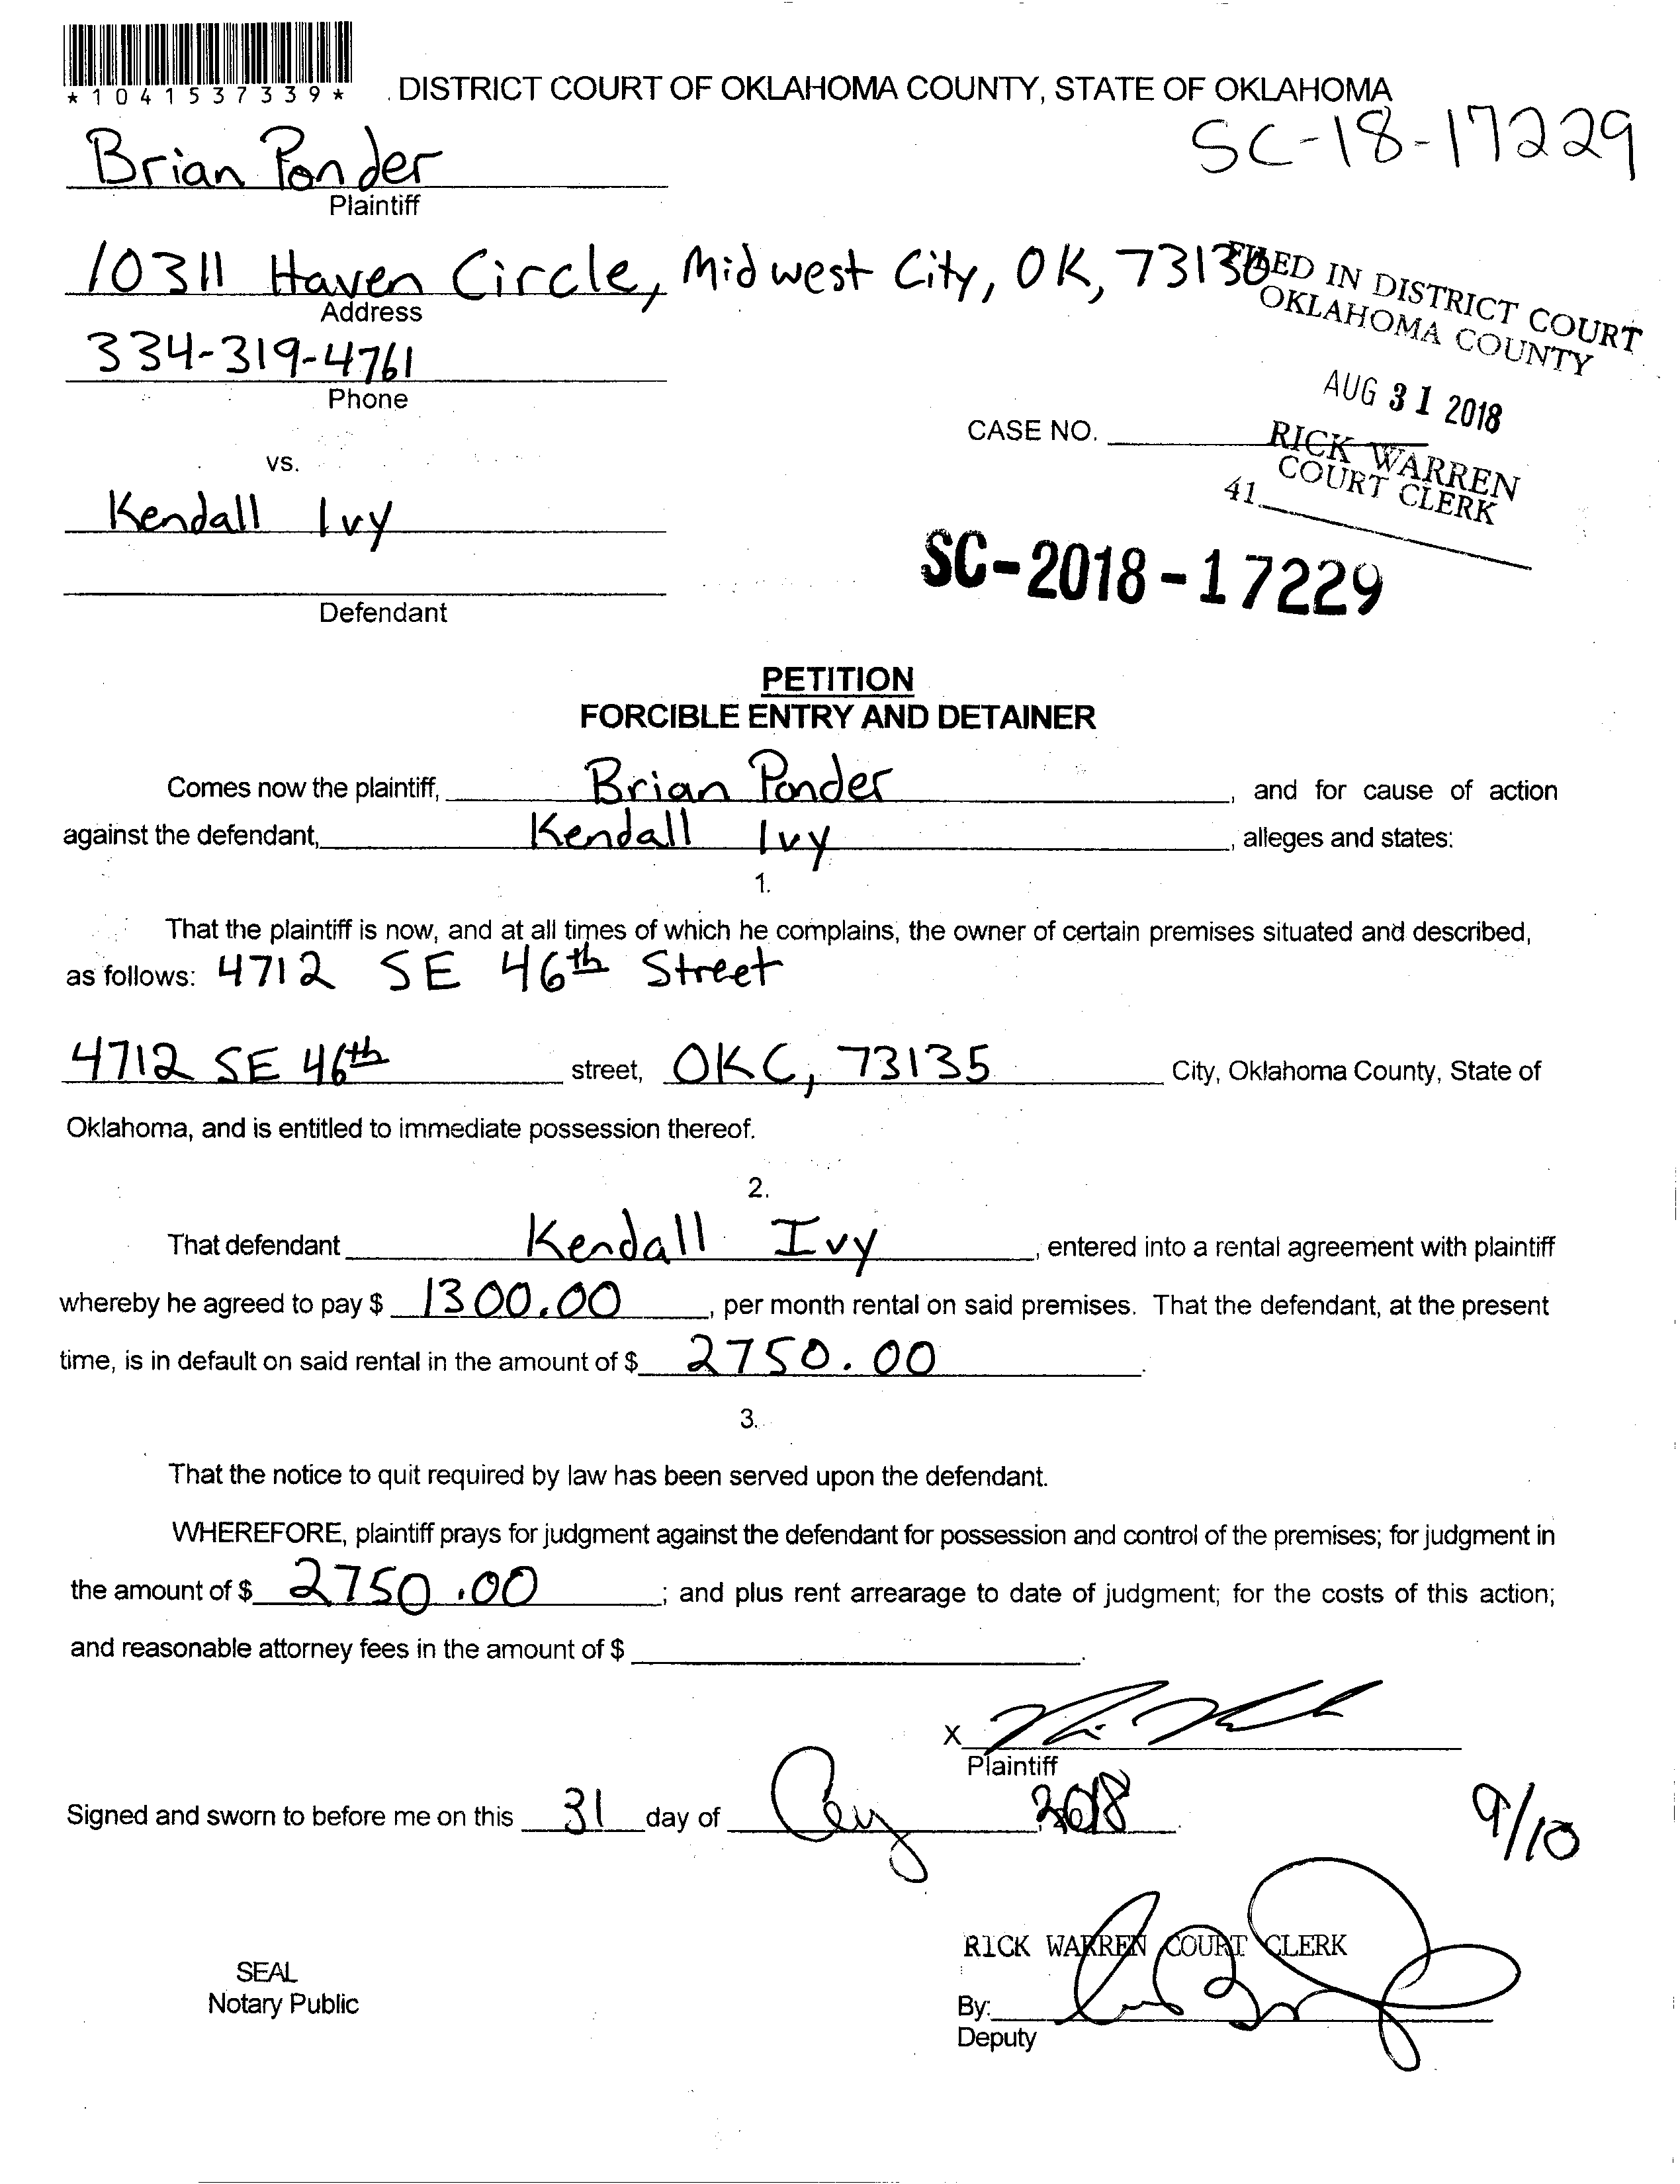 *1041537339*
DISTRICT COURT OF OKLAHOMA COUNTY, STATE OF OKLAHOMA
SC-18-17229
Brian Ponder
Plaintiff
10311 Haven Circle, Midwest City, OK, 73130
Address
FILED IN DISTRICT COURT
OKLAHOMA COUNTY
334-319-4761
Phone
AUG 31 2018
CASE NO.
RICK WARREN
COURT CLERK
41
vs.
Kendall Ivy
Defendant
SC-2018-17229
PETITION
FORCIBLE ENTRY AND DETAINER
Comes now the plaintiff, Brian Ponder, and for cause of action
against the defendant, Kendall Ivy, alleges and states:
1.
That the plaintiff is now, and at all times of which he complains, the owner of certain premises situated and described,
as follows: 4712 SE 46th Street
4712 SE 46th street, OKC, 73135 City, Oklahoma County, State of
Oklahoma, and is entitled to immediate possession thereof.
2.
That defendant Kendall Ivy, entered into a rental agreement with plaintiff
whereby he agreed to pay $ 1300.00, per month rental on said premises. That the defendant, at the present
time, is in default on said rental in the amount of $ 2750.00.
3.
That the notice to quit required by law has been served upon the defendant.
WHEREFORE, plaintiff prays for judgment against the defendant for possession and control of the premises; for judgment in
the amount of $ 2750.00; and plus rent arrearage to date of judgment; for the costs of this action;
and reasonable attorney fees in the amount of $ .
X
Plaintiff
Signed and sworn to before me on this 31 day of 2018
9/10
RICK WARREN COURT CLERK
SEAL
Notary Public
By:
Deputy